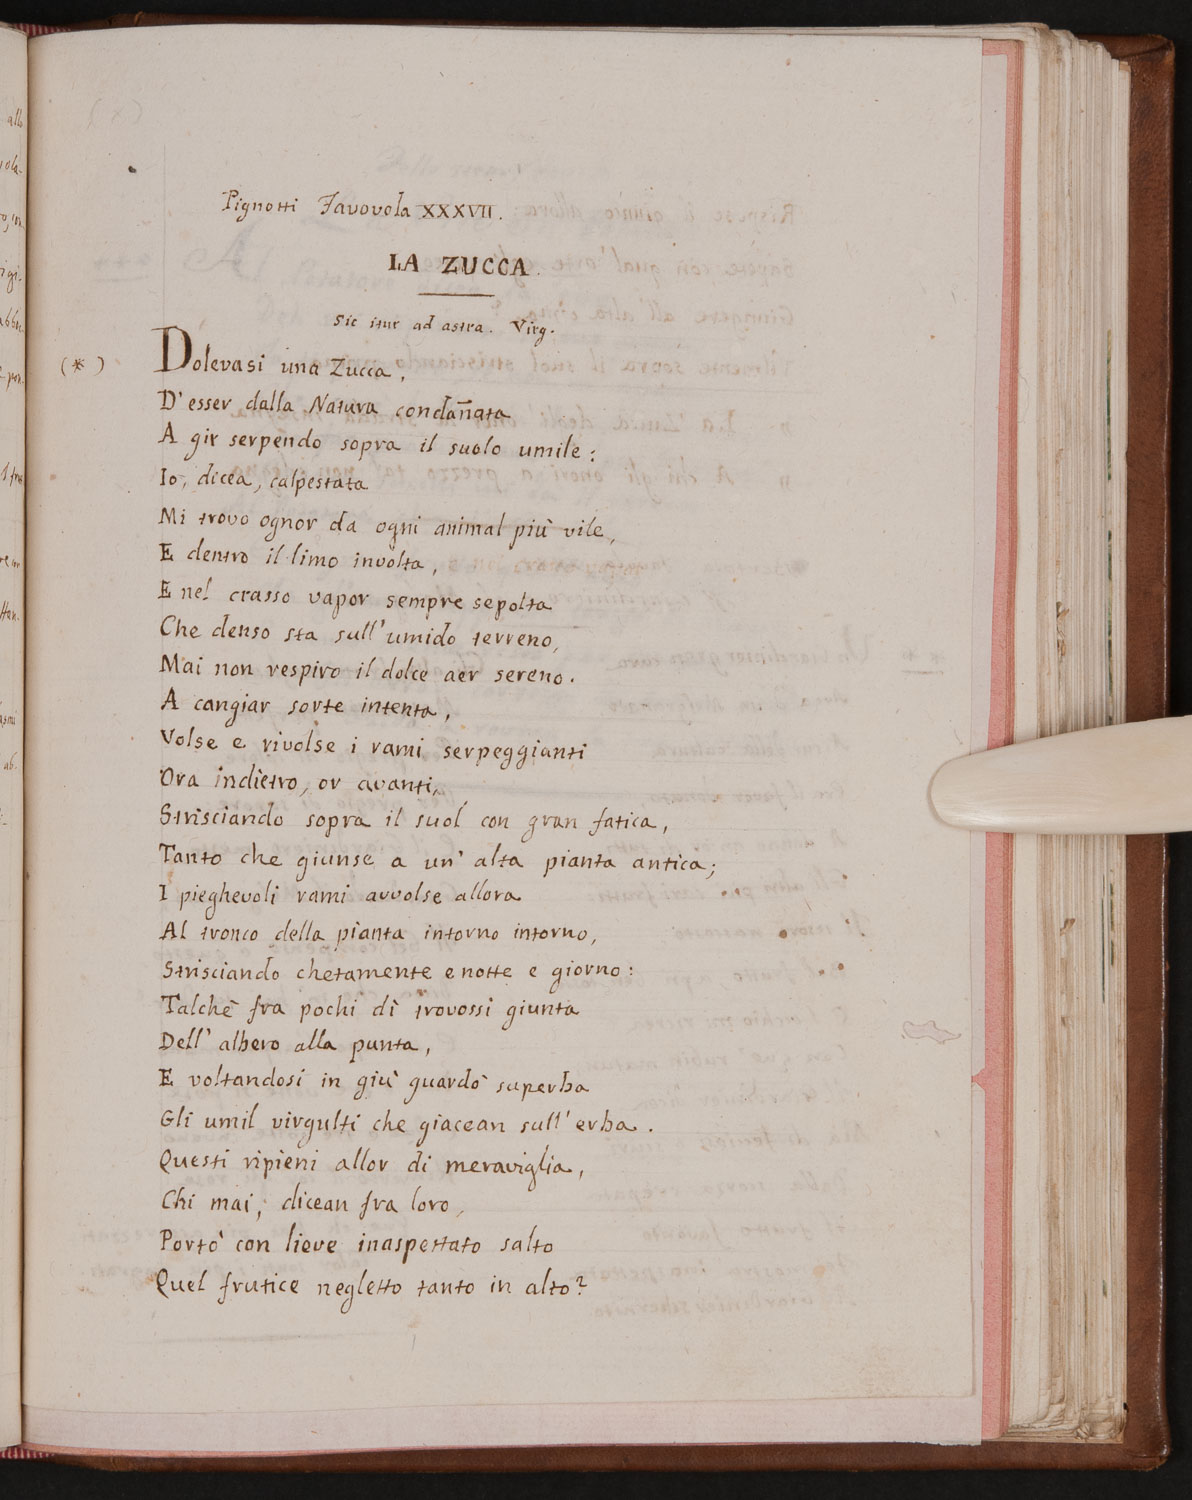 Pignotti Favovola XXXVII.
LA ZUCCA.
Sic itur ad astra. Virg.
(*) Dolevasi una Zucca,
D'esser dalla Natura condan̄ata
A gir serpendo sopra il suolo umile:
Io, dicea, calpestata
Mi trovo ognor da ogni animal più vile,
E dentro il limo involta,
E nel crasso vapor sempre sepolta
Che denso sta sull'umido terreno,
Mai non respiro il dolce aer sereno.
A cangiar sorte intenta,
Volse e rivolse i rami serpeggianti
Ora indietro, or avanti,
Strisciando sopra il suol con gran fatica,
Tanto che giunse a un' alta pianta antica;
I pieghevoli rami avvolse allora
Al tronco della pianta intorno intorno,
Strisciando chetamente e notte e giorno:
Talchè fra pochi dì trovossi giunta
Dell' albero alla punta,
E voltandosi in giù guardò superba
Gli umil virgulti che giacean sull'erba.
Questi ripieni allor di meraviglia,
Chi mai, dicean fra loro,
Portò con lieve inaspettato salto
Quel frutice negletto tanto in alto?